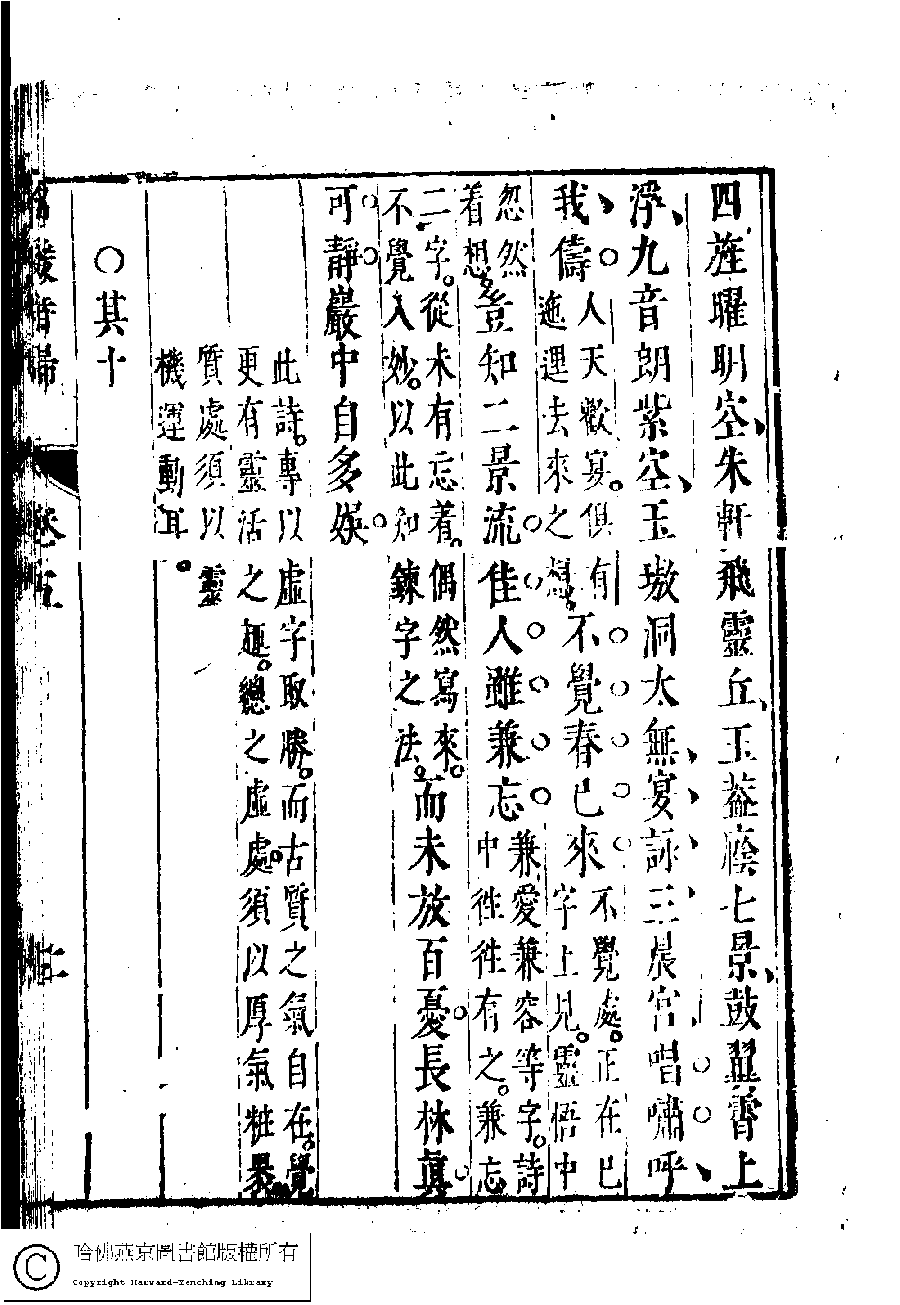 四旌曜明空朱軒飛靈丘玉葢蔭七景鼓翼霄上
浮九音朗紫空玉璈洞太無宴詠三晨宮唱嘯呼
我儔
人天歡宴。俱有
迤邐去來之想。
不覺春已來
不覺處。正在已
字上見。靈悟中
忽然
看想。
豈知二景流佳人雖兼忘
兼愛兼容等字。詩
中徃徃有之。兼忘
二字。從未有忘着。偶然寫來。
不覺入妙。以此知鍊字之法。
而未放百憂長林眞
可靜巖中自多娛
此詩。專以虛字取勝。而古質之氣自在。覺
更有靈活之趣。總之虛處。須以厚氣粧
質處須以靈
機運動耳。
○其十
卷五
哈佛燕京圖書館版權所有
Copyright Harvard-Yenching Library